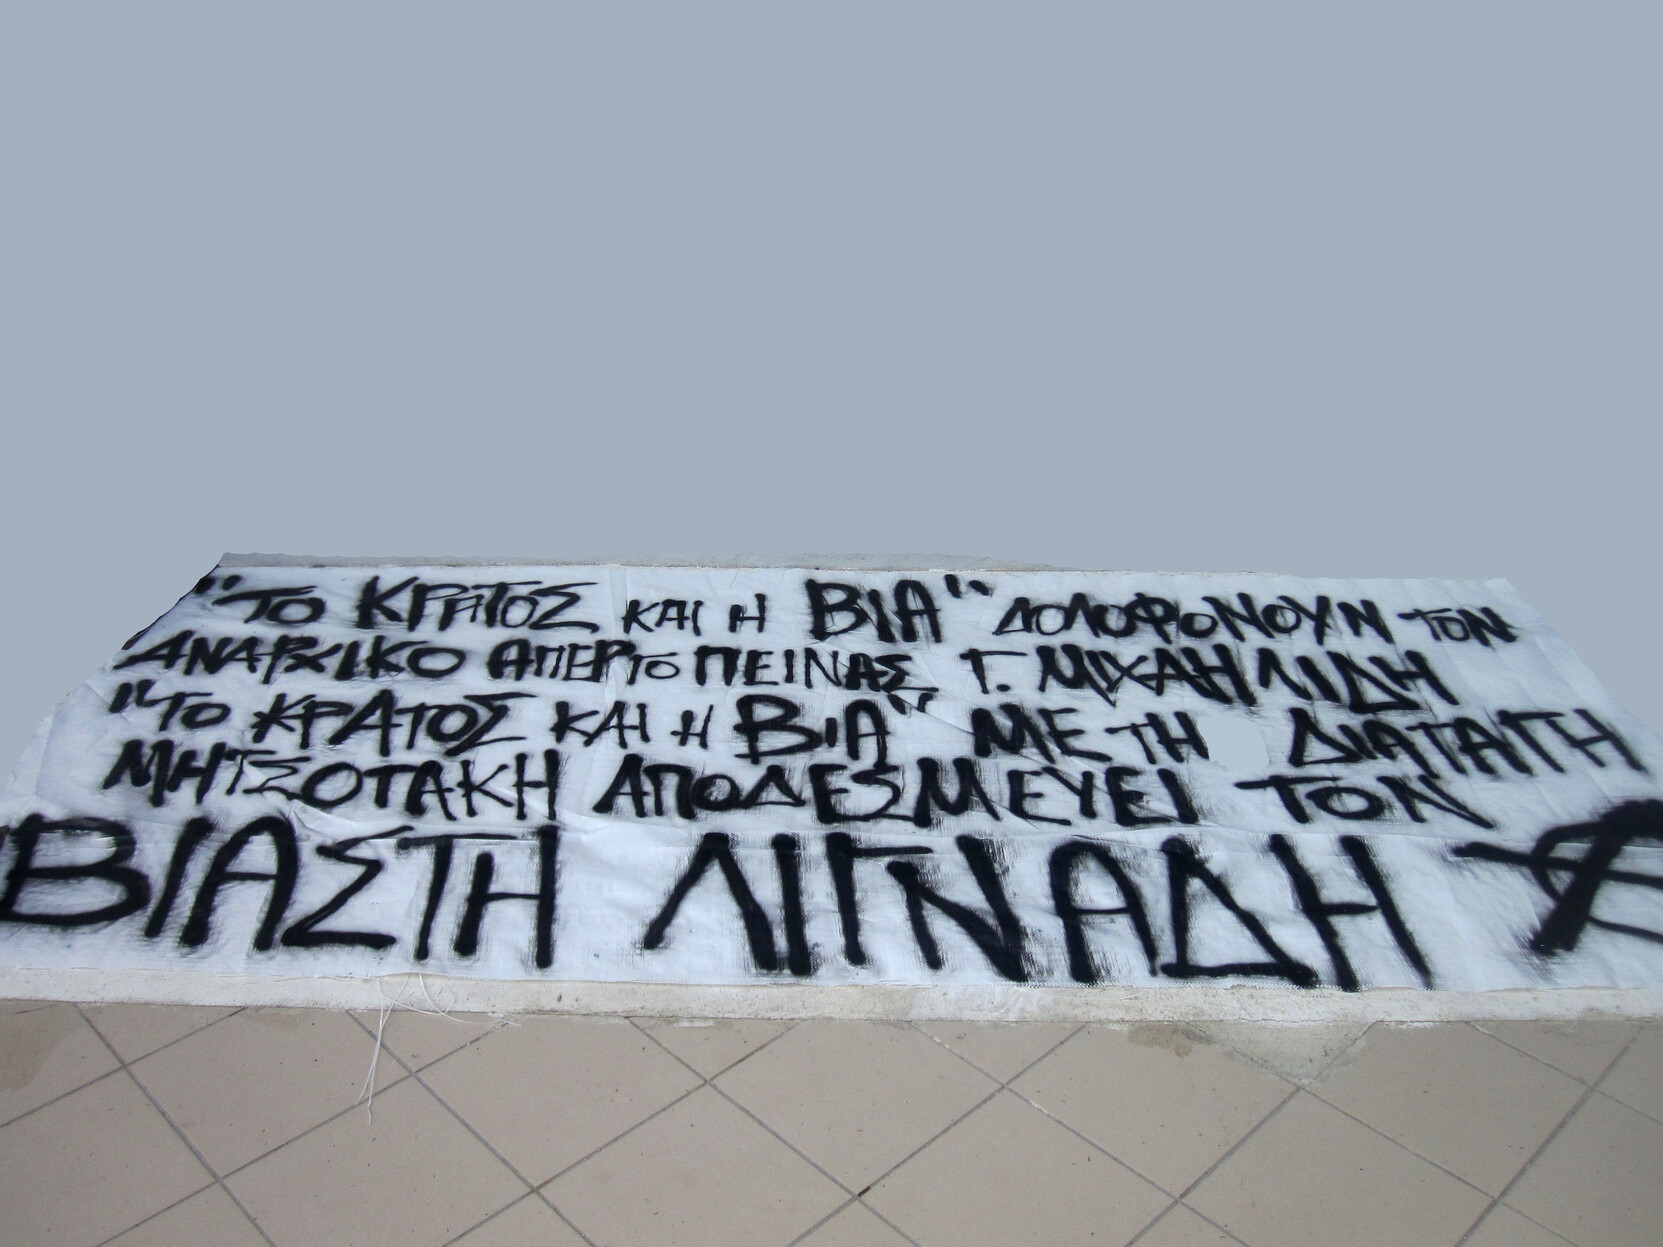 "ΤΟ ΚΡΑΤΟΣ ΚΑΙ Η ΒΙΑ" ΔΟΛΟΦΟΝΟΥΝ ΤΟΝ
ΑΝΑΡΧΙΚΟ ΑΠΕΡΓΟ ΠΕΙΝΑΣ Γ. ΜΙΧΑΗΛΙΔΗ
"ΤΟ ΚΡΑΤΟΣ ΚΑΙ Η ΒΙΑ" ΜΕ ΤΗ ΔΙΑΤΑΓΗ
ΜΗΤΣΟΤΑΚΗ ΑΠΟΔΕΣΜΕΥΕΙ ΤΟΝ
ΒΙΑΣΤΗ ΛΙΓΝΑΔΗ